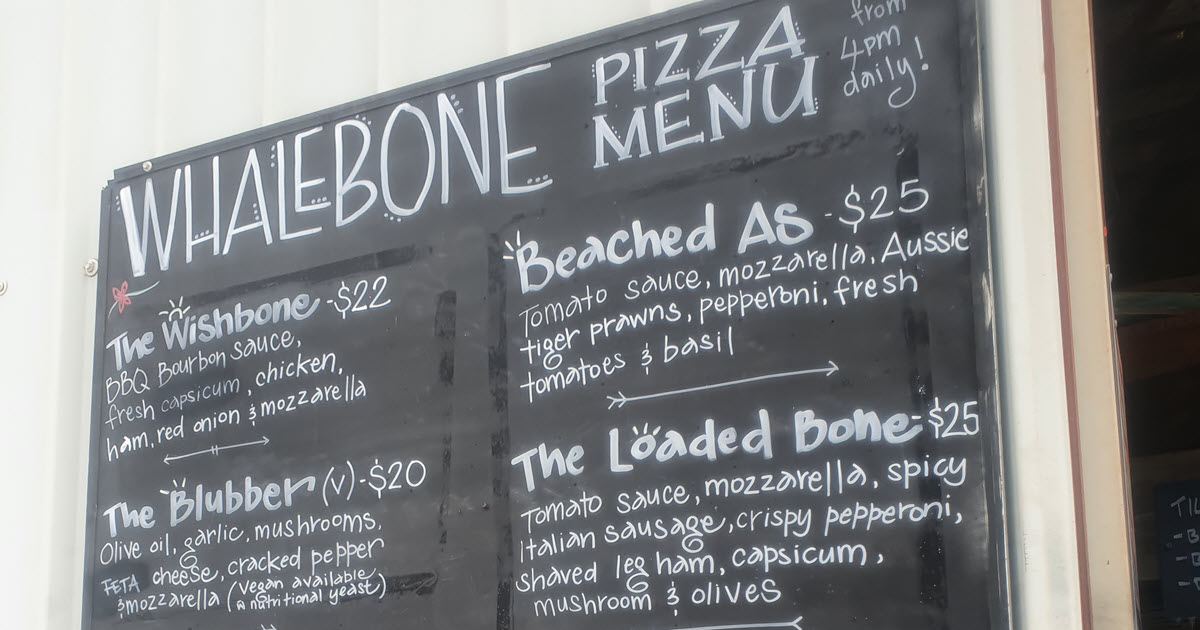 WHALEBONE
PIZZA
MENU
from
4pm
daily!
The Wishbone - $22
BBQ Bourbon sauce,
fresh capsicum, chicken,
ham, red onion & mozzarella
The Blubber (v) - $20
Olive oil, garlic, mushrooms,
FETA cheese, cracked pepper
& mozzarella (vegan available
nutritional yeast)
Beached As - $25
Tomato sauce, mozzarella, Aussie
tiger prawns, pepperoni, fresh
tomatoes & basil
The Loaded Bone - $25
Tomato sauce, mozzarella, spicy
Italian sausage, crispy pepperoni,
shaved leg ham, capsicum,
mushroom & olives